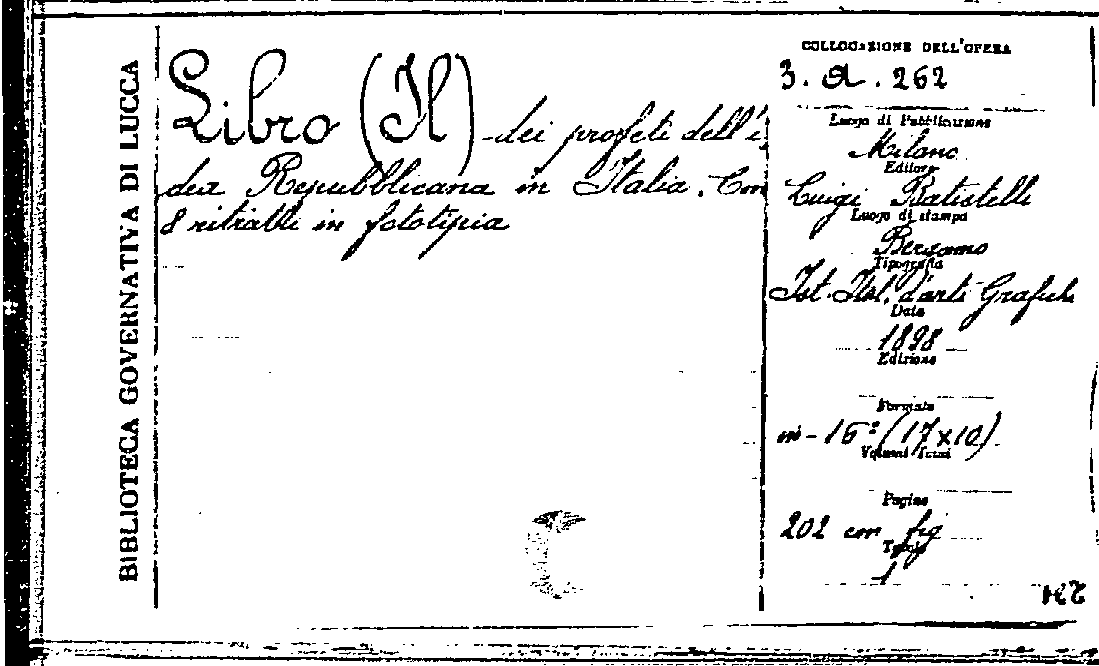 BIBLIOTECA GOVERNATIVA DI LUCCA
Libro (Il) dei profeti dell'i
dea Repubblicana in Italia. Con
8 ritratti in fototipia
COLLOCAZIONE DELL'OPERA
3. a. 262
Luogo di Pubblicazione
Milano
Editore
Luigi Batistelli
Luogo di stampa
Bergamo
Tipografia
Ist. Ital. d'arti Grafich
Data
1898
Edizione
Formato
in-16º (17x10)
Volumi Tomi
Pagine
202 con fig
1